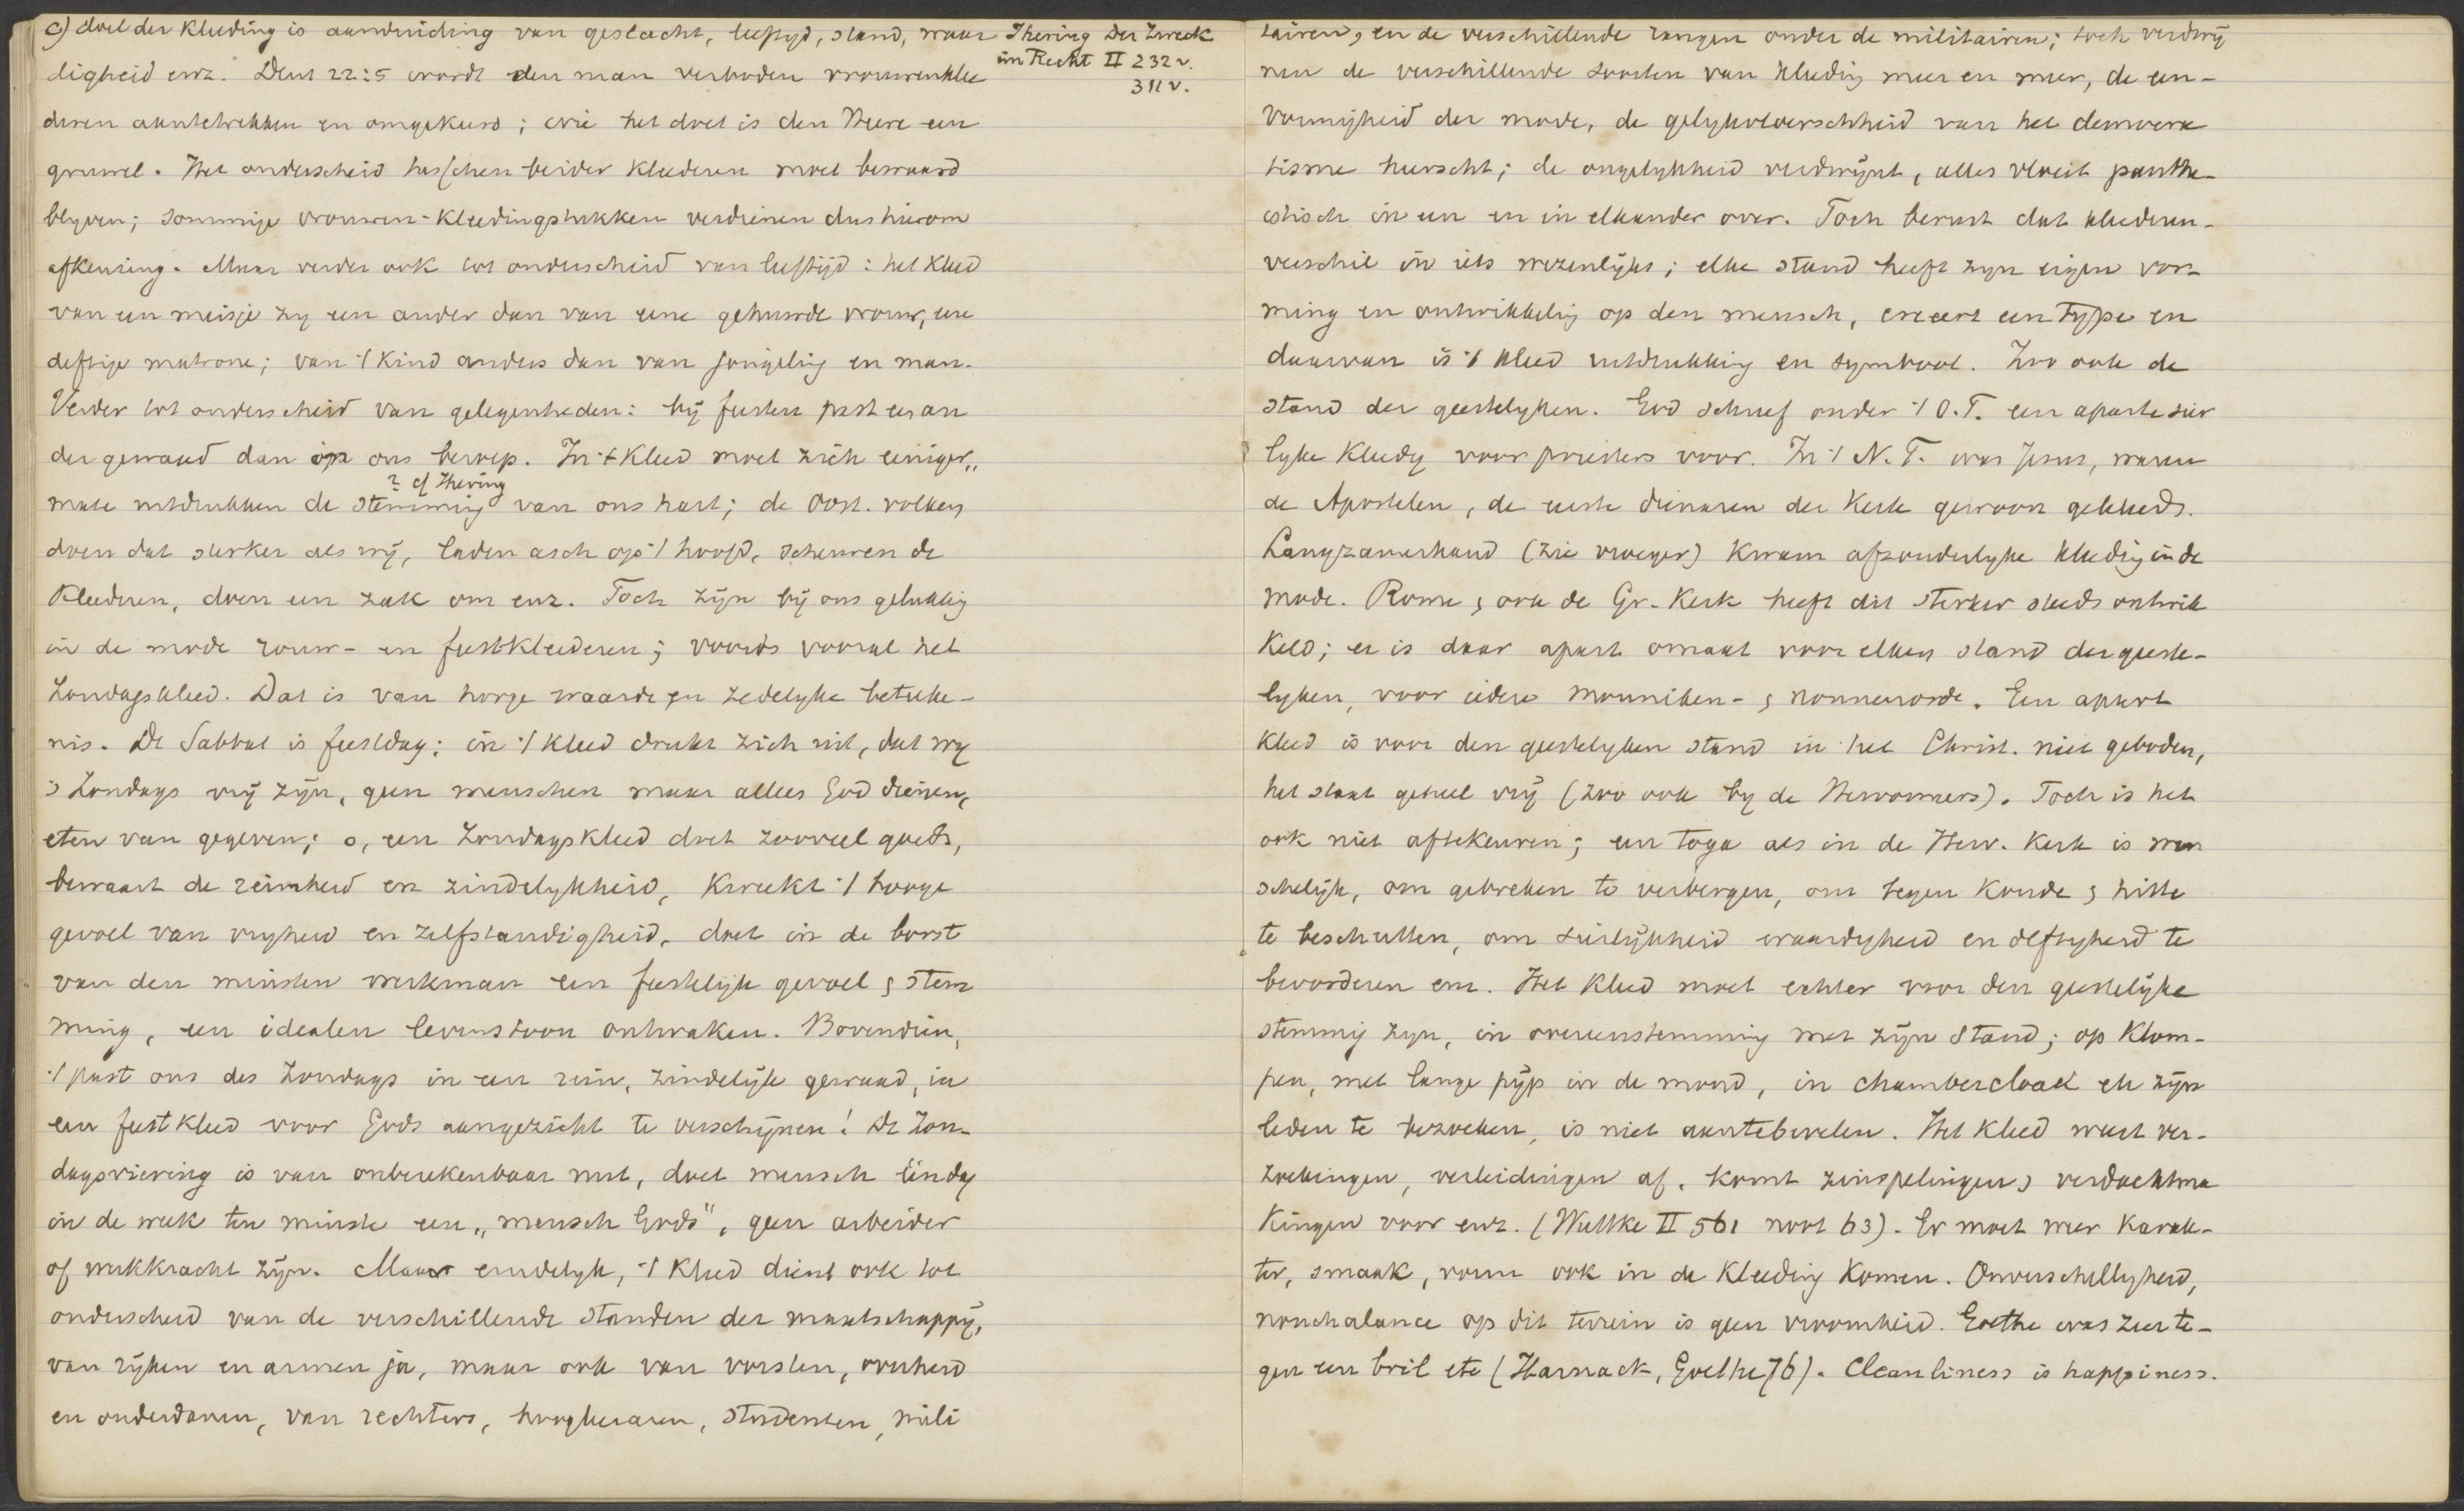 c) doel der kleeding is aanduiding van geslacht, leeftijd, stand, waar
digheid enz. Deut 22:5 wordt den man verboden vrouwenklee
deren aantetrekken en omgekeerd; wie het doet is den Heere een
gruwel. Het onderscheid tusschen beider kleederen moet bewaard
blyven; sommige vrouwen-kleedingstukken verdienen dus hierom
afkeuring. Maar verder ook tot onderscheid van leeftijd: het kleed
van een meisje zy een ander dan van eene gehuwde vrouw, eene
deftige matrone; van 't kind anders dan van jongeling en man.
Verder tot onderscheid van gelegenheden: bij feesten past een an
der gewaad dan in ons beroep. In 't kleed moet zich eeniger„
? cf Ihering
mate uitdrukken de stemming van ons hart; de Oost. volken
doen dat sterker als wij, laden asch op 't hoofd, scheuren de
kleederen, doen een zak om enz. Toch zijn bij ons gelukkig
in de mode rouw- en feestkleederen; voorts vooral het
Zondagskleed. Dat is van hooge waarde en zedelyke beteeke-
nis. De Sabbat is feestdag: in 't kleed drukt zich uit, dat wy
's Zondags vrij zijn, geen menschen maar alles God dienen,
eten van gegeven; o, een Zondagskleed doet zooveel goeds,
bewaart de reinheid en zindelykheid, kweekt 't hooge
gevoel van vryheid en zelfstandigheid, doet in de borst
van den minsten werkman een feestelijk gevoel & stem
ming, een idealen levenstoon ontwaken. Bovendien,
't past ons des Zondags in een rein, zindelijk gewaad, in
een feestkleed voor Gods aangezicht te verschijnen! De Zon-
dagsviering is van onberekenbaar nut, doet mensch één dag
in de week ten minste een „mensch Gods", geen arbeider
of werkkracht zijn. Maar eindelyk, 't kleed dient ook tot
onderscheid van de verschillende standen der maatschappij,
van rijken en armen ja, maar ook van vorsten, overheid
en onderdanen, van rechters, hoogleraren, studenten, mili
Ihering Der Zweck
im Recht II 232 v.
311 v.
tairen, en de verschillende rangen onder de militairen; toch verdwij
nen de verschillende soorten van kleedij meer en meer, de een-
vormigheid der mode, de gelykvloerschheid van het democra
tisme heerscht; de ongelykheid verdwijnt, alles vloeit panthe-
istisch in een en in elkander over. Toch berust dat kleederen-
verschil in iets wezenlijks; elke stand heeft zyn eigen vor-
ming en ontwikkeling op den mensch, creeert een type en
daarvan is 't kleed uitdrukking en symbool. Zoo ook de
stand der geestelyken. God schreef onder 't O.T. een aparte sier
lyke kleedij voor priesters voor. In 't N.T. was Jezus, waren
de Apostelen, de eerste dienaren der Kerk gewoon gekleed.
Langzamerhand (zie vroeger) kwam afzonderlyke kleedij in de
mode. Rome, ook de Gr. Kerk heeft dit sterker steeds ontwik
keld; er is daar apart ornaat voor elken stand der geeste-
lyken, voor iedere monniken- & nonnenorde. Een apart
kleed is voor den geestelyken stand in het Christ. niet geboden,
het staat geheel vrij (zoo ook by de Hervormers). Toch is het
ook niet aftekeuren; een toga als in de Herv. Kerk is wen
schelijk, om gebreken te verbergen, om tegen koude & hitte
te beschutten, om sierlijkheid waardyheid en deftigheid te
bevorderen enz. Het kleed moet echter voor den geestelijke
stemmig zyn, in overeenstemming met zijn stand; op klom-
pen, met lange pijp in de mond, in chambercloak etc zijn
leden te bezoeken, is niet aantebevelen. Het kleed weert ver-
zoekingen, verleidingen af, komt zinspelingen & verdachtma
kingen voor enz. (Wuttke II 561 noot 63). Er moet meer karak-
ter, smaak, vorm ook in de kleeding komen. Onverschilligheid,
nonchalance op dit terrein is geen vroomheid. Goethe was zeer te-
gen een bril etc (Harnack, Goethe 76). Cleanliness is happiness.